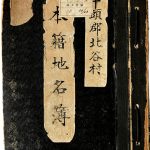 中頭郡北谷村
本籍地名簿